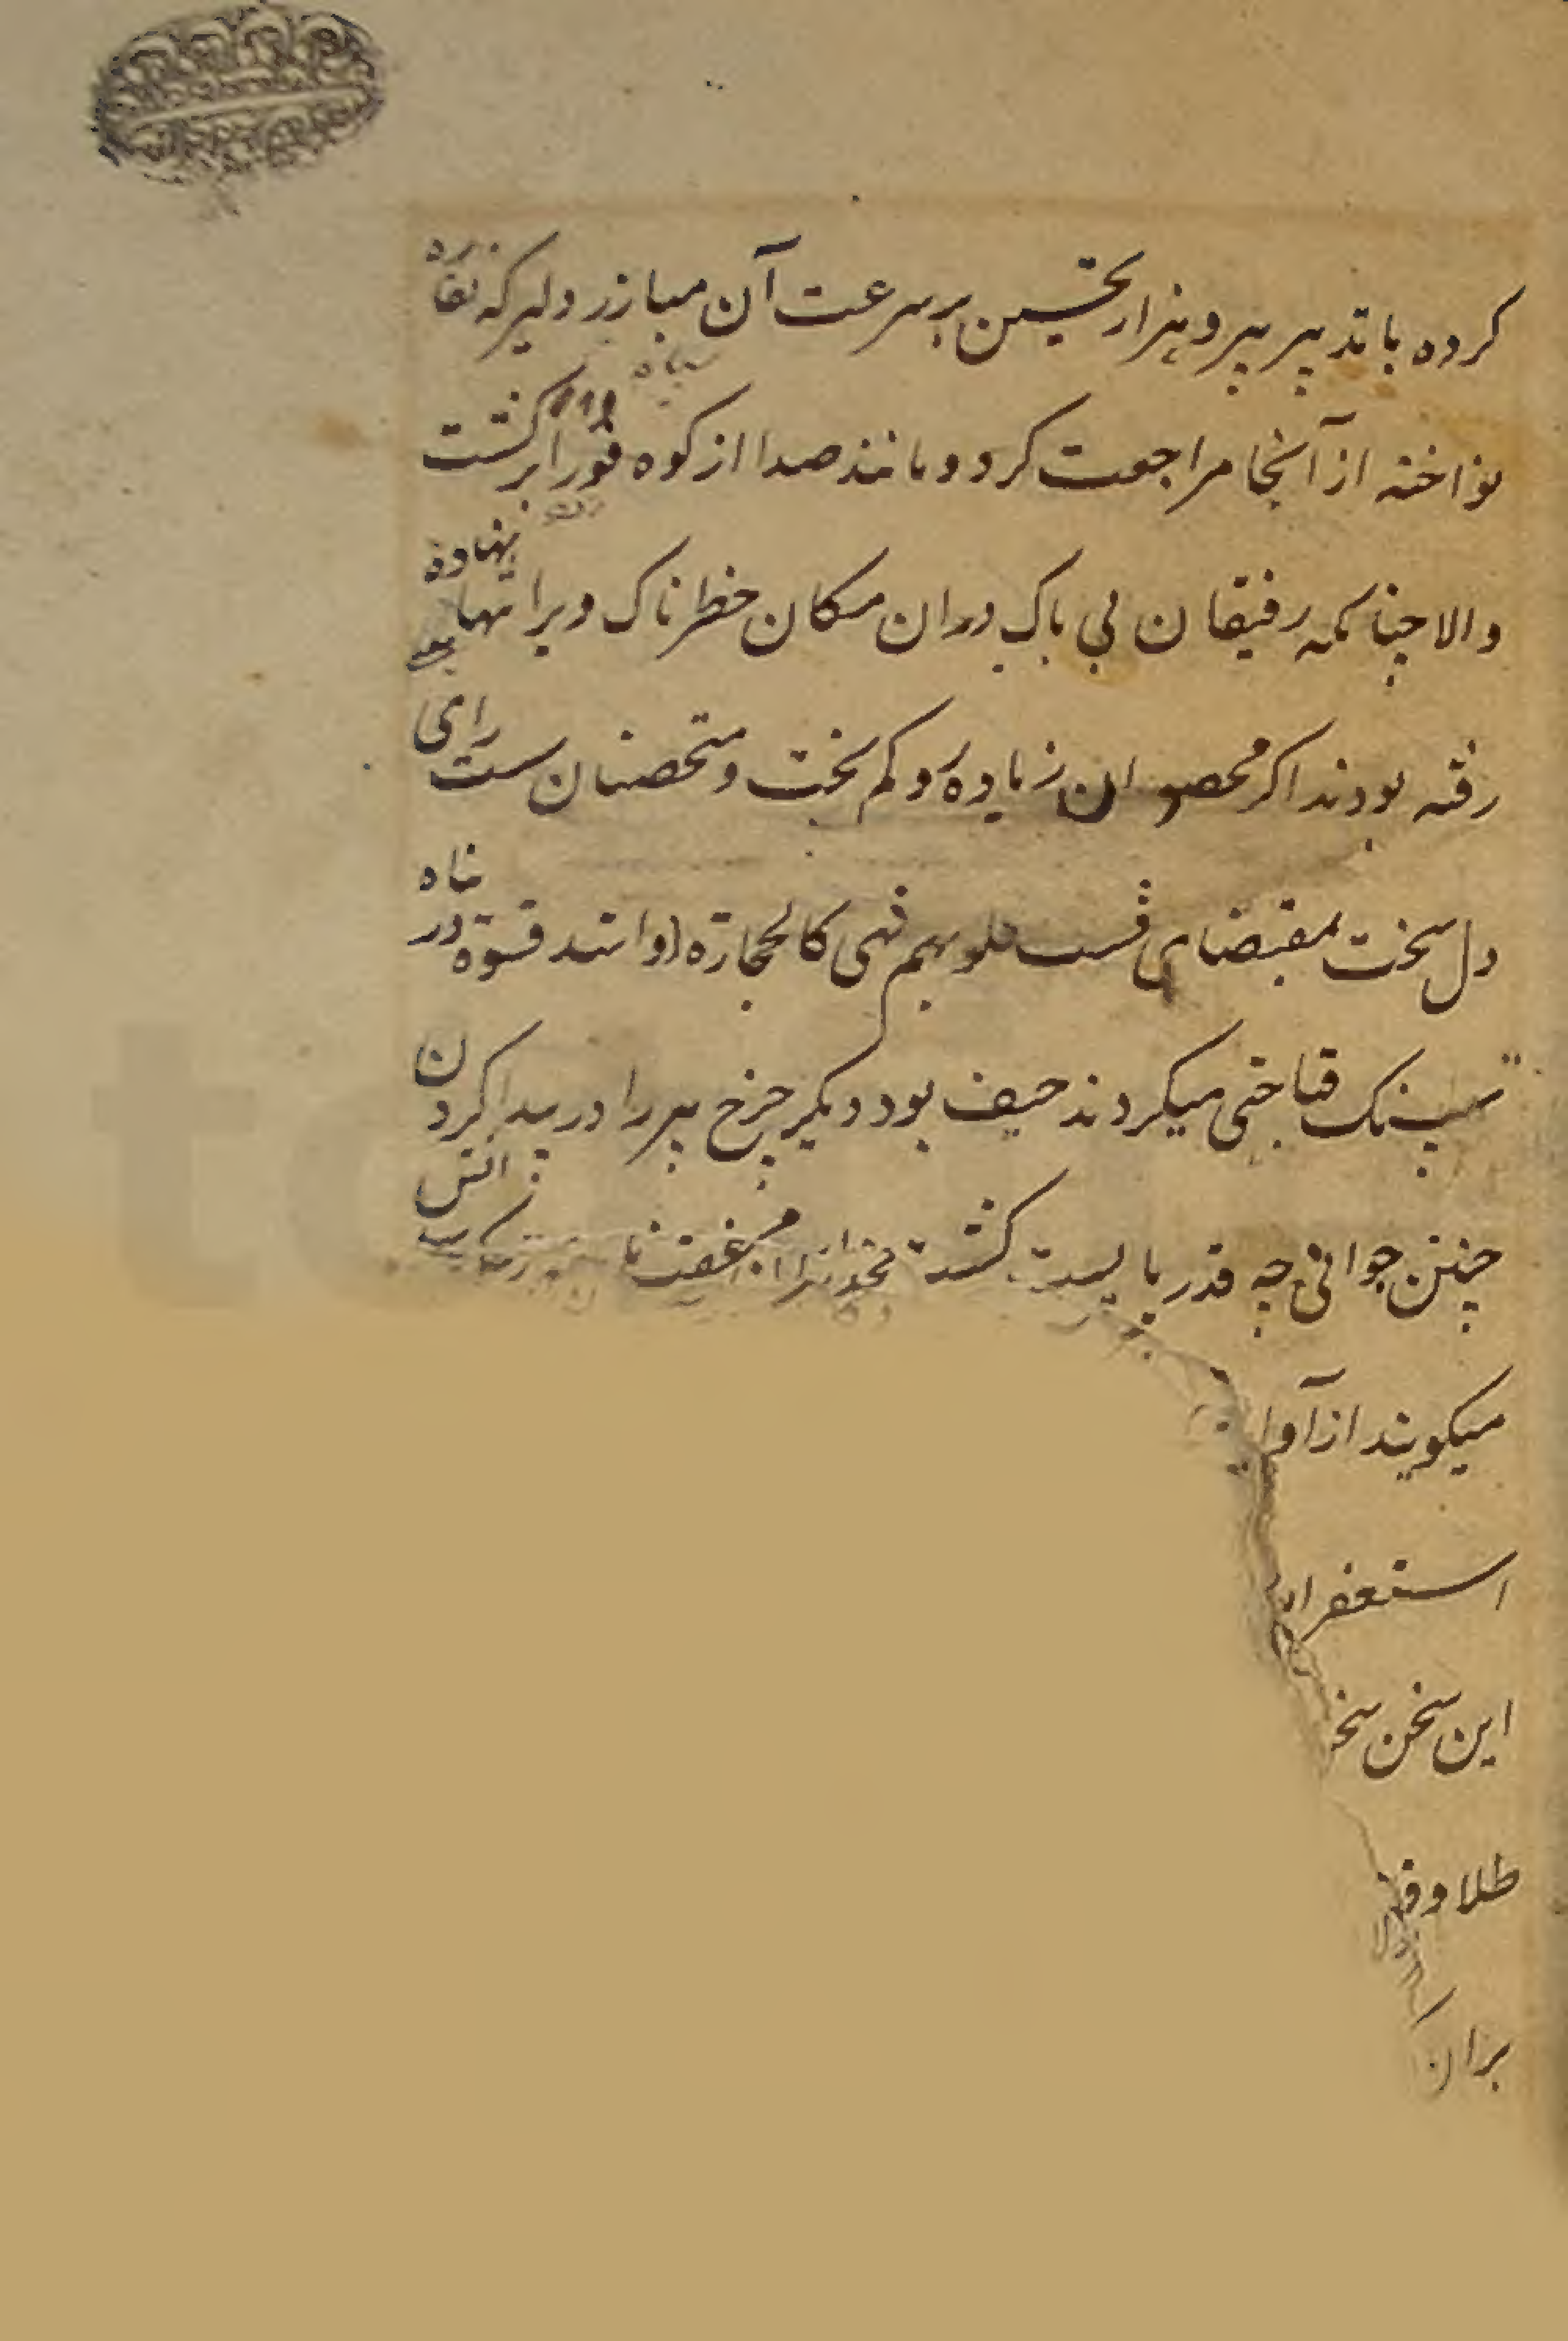 کرده باتدبیر پیر و هزار تحسین بر سرعت آن مبارز دلیر که نقاره
نواخته از آنجا مراجعت کرد و مانند صدا از کوه فورا برگشت
والا چنانکه رفیقان بی باک دران مکان خطرناک ویرا تنها نهاده
رفته بودند اکر محصوران زیاده رو کم بخت و متحصنان سست رای
دل سخت بمقتضای قست قلوبهم فهی کالحجارة او اشد قسوة در پناه
سنک قباحتی میکردند حیف بود دیکر چرخ پیر را در پیدا کردن
چنین جوانی چه قدر بایست کشت
میکویند از آوا
استغفر ا
این سخن سخ
طلا و
بران